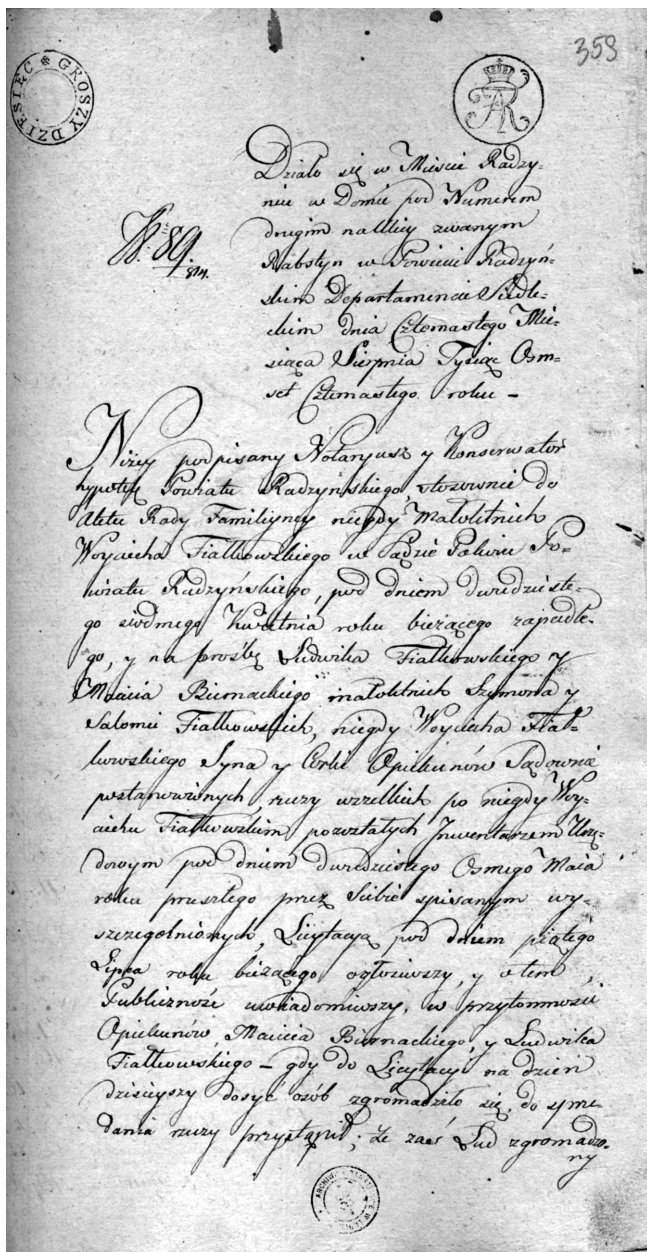 359
GROSZY DZIESIĘC
Działo się w Mieście Radzy-
niu w Domie pod Numerem
drugim na Ulicy zwanym
Kabstyn w Powiecie Radzyń-
skim Departamencie Siedle-
ckim dnia Czternastego Mie-
siąca Sierpnia Tysiąc Osm-
set Czternastego roku –
Nr 89.
814.
Niżey podpisany Notaryusz y Konserwator
hypoteki Powiatu Radzyńskiego, stosownie do
Aktu Rady Familiyney niegdy Małoletnich
Woyciecha Fiałkowskiego w Sądzie Pokoiu Po-
wiatu Radzyńskiego, pod dniem dwudzieste-
go siódmego Kwietnia roku bieżącego zapadłe-
go, y na prośbę Ludwika Fiałkowskiego y
Macieia Biernackiego małoletnich Szymona y
Salomei Fiałkowskich, niegdy Woyciecha Fiał-
kowskiego Syna y Corki Opiekunów Sądownie
postanowionych, rzeczy wszelkich po niegdy Woy-
ciechu Fiałkowskim pozostałych Inwentarzem Urzę-
dowym pod dniem dwudziestego Osmego Maia
roku przeszłego przez Siebie spisanym wy-
szczegolnionych, Licytacyą pod dniem piątego
Lipca roku bieżącego ogłosiwszy, y o tem
Publiczność uwiadomiwszy, w przytomności
Opiekunów Macieia Biernackiego y Ludwika
Fiałkowskiego – gdy do Licytacyi na dzień
dzisieyszy dosyć osób zgromadziło się, do sprze-
dania rzeczy przystąpił; że zaś Lud zgromadzo-
ny